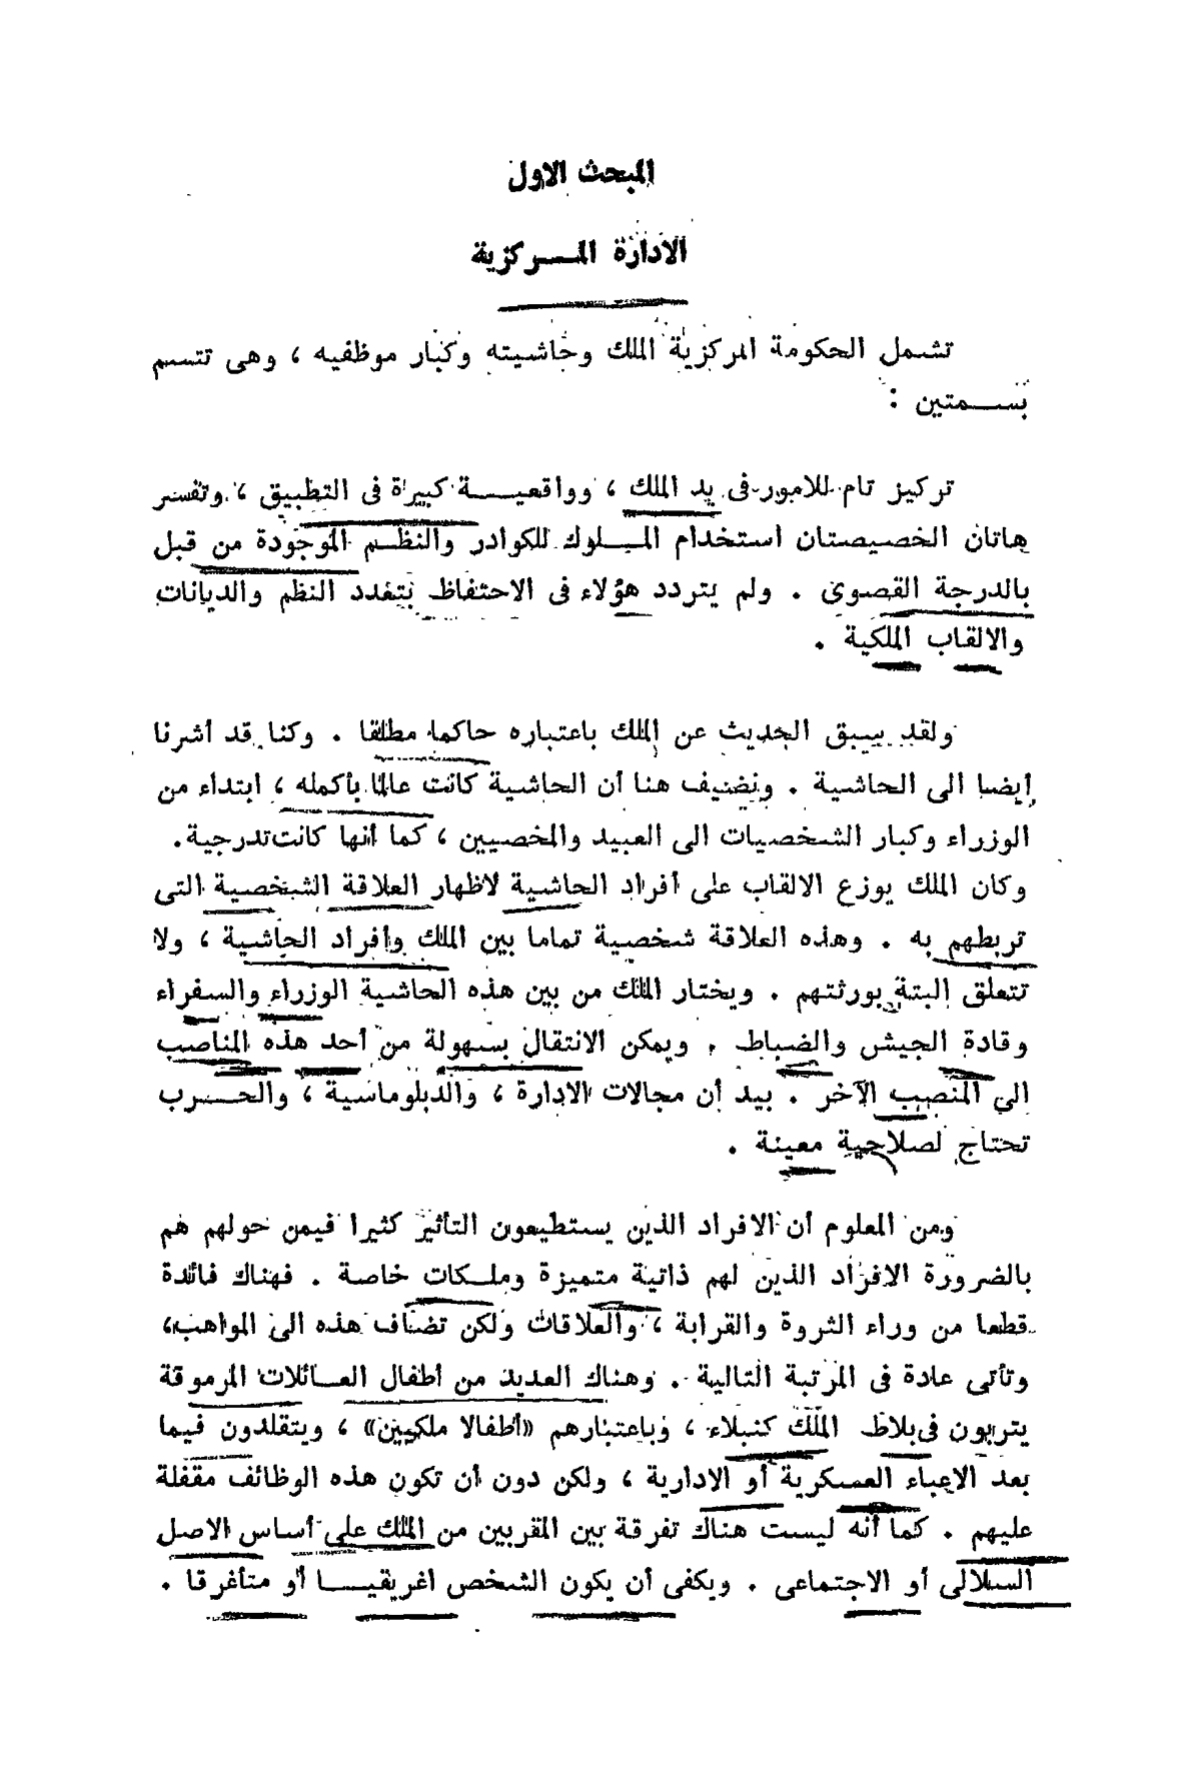 المبحث الاول
الادارة المــركزية
تشمل الحكومة المركزية الملك وحاشيته وكبار موظفيه ، وهى تتسم
بســمتين :
تركيز تام للامور فى يد الملك ، وواقعيــة كبيرة فى التطبيق ، وتفسر
هاتان الخصيصتان استخدام المـلوك للكوادر والنظـم الموجودة من قبل
بالدرجة القصوى . ولم يتردد هؤلاء فى الاحتفاظ بتعدد النظم والديانات
والالقاب الملكية .
ولقد سبق الحديث عن الملك باعتباره حاكما مطلقا . وكنا قد أشرنا
أيضا الى الحاشية . ونضيف هنا أن الحاشية كانت عالما بأكمله ، ابتداء من
الوزراء وكبار الشخصيات الى العبيد والخصيين ، كما أنها كانت تدرجية .
وكان الملك يوزع الالقاب على أفراد الحاشية لاظهار العلاقة الشخصية التى
تربطهم به . وهذه العلاقة شخصية تماما بين الملك وأفراد الحاشية ، ولا
تتعلق البتة بورثتهم . ويختار الملك من بين هذه الحاشية الوزراء والسفراء
وقادة الجيش والضباط . ويمكن الانتقال بسهولة من أحد هذه المناصب
الى المنصب الآخر . بيد أن مجالات الادارة ، والدبلوماسية ، والحــرب
تحتاج لصلاحية معينة .
ومن المعلوم أن الافراد الذين يستطيعون التأثير كثيرا فيمن حولهم هم
بالضرورة الافراد الذين لهم ذاتية متميزة وملكات خاصة . فهناك فائدة
قطعا من وراء الثروة والقرابة ، والعلاقات ولكن تضاف هذه الى المواهب،
وتأتى عادة فى المرتبة التالية . وهناك العديد من أطفال العـائلات المرموقة
يتربون فى بلاط الملك كنبلاء ، وباعتبارهم «أطفالا ملكيين» ، ويتقلدون فيما
بعد الاعباء العسكرية أو الادارية ، ولكن دون أن تكون هذه الوظائف مقفلة
عليهم . كما أنه ليست هناك تفرقة بين المقربين من الملك على أساس الاصل
السلالى أو الاجتماعى . ويكفى أن يكون الشخص اغريقيــا أو متأغرقا .